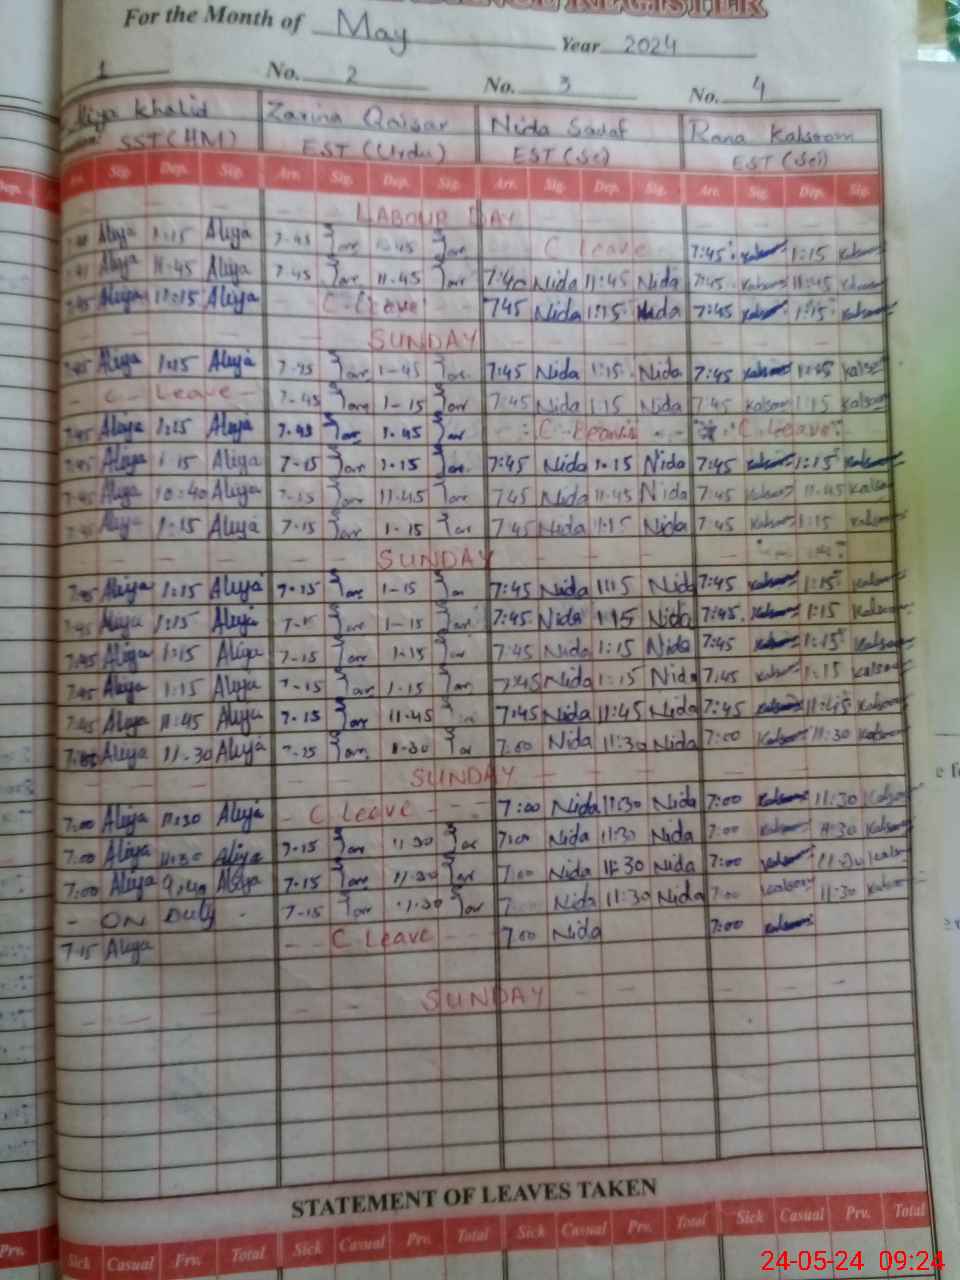 REGISTER
For the Month of May Year 2024
1 No. 2 No. 3 No. 4
Aliya Khalid Zarina Qaisar Nida Sadaf Rana Kalsoom
SST (HM) EST (Urdu) EST (Sci) EST (Sci)
Sig. Dep. Sig. Arr. Sig. Dep. Sig. Arr. Sig. Dep. Sig. Arr. Sig. Dep. Sig.
LABOUR DAY
Aliya 1:15 Aliya 7-45 Zar Zar C Leave 7:45 Kalsoom 1:15 Kalsoom
Aliya 11:45 Aliya 7-45 Zar 11.45 Zar 7:40 Nida 11:45 Nida 7:45 Kalsoom 11:45 Kalsoom
7:45 Aliya Aliya C-Leave 745 Nida 1:15 Nida 7:45 Kalsoom 1:15 Kalsoom
SUNDAY
7:45 Aliya 1:15 Aliya 7-45 Zar 1-45 Zar 7:45 Nida 1:15 Nida 7:45 Kalsoom Kalsoom
- C - Leave - 7-45 Zar 1-15 Zar 7:45 Nida 1:15 Nida 7:45 Kalsoom 1:15 Kalsoom
7:45 Aliya 1:15 Aliya 7.45 Zar 1.45 Zar C-Leave C Leave
7:45 Aliya 1:15 Aliya 7-15 Zar 1.15 Zar 7:45 Nida 1:15 Nida 7:45 Kalsoom 1:15 Kalsoom
7:45 Aliya 10:40 Aliya 7-15 Zar 11.45 Zar 745 Nida 11:45 Nida 7:45 Kalsoom 11:45 Kalsoom
7:45 Aliya 1:15 Aliya 7-15 Zar 1-15 Zar 7:45 Nida 1:15 Nida 7:45 Kalsoom 1:15 Kalsoom
SUNDAY
7:45 Aliya 1:15 Aliya 7-15 Zar 1-15 Zar 7:45 Nida 1:15 Nida 7:45 Kalsoom 1:15 Kalsoom
7:45 Aliya 1:15 Aliya 7-15 Zar 1-15 Zar 7:45 Nida 1:15 Nida 7:45 Kalsoom 1:15 Kalsoom
7:45 Aliya 1:15 Aliya 7-15 Zar 1-15 Zar 7:45 Nida 1:15 Nida 7:45 Kalsoom 1:15 Kalsoom
7:45 Aliya 1:15 Aliya 7-15 Zar 1-15 Zar 7:45 Nida 1:15 Nida 7:45 Kalsoom 1:15 Kalsoom
7:45 Aliya 11:45 Aliya 7-15 Zar 11.45 Zar 7:45 Nida 11:45 Nida 7:45 Kalsoom 11:45 Kalsoom
Aliya 11.30 Aliya Zar 11-30 Zar 7:00 Nida 11:30 Nida 7:00 Kalsoom 11:30 Kalsoom
SUNDAY
7:00 Aliya 11:30 Aliya - C Leave - 7:00 Nida 11:30 Nida 7:00 Kalsoom 11:30 Kalsoom
7:00 Aliya 11:30 Aliya 7-15 Zar 11.30 Zar 7:00 Nida 11:30 Nida 7:00 Kalsoom 11:30 Kalsoom
7:00 Aliya Aliya 7-15 Zar 11.30 Zar 7:00 Nida 11:30 Nida 7:00 Kalsoom 11:30 Kalsoom
- ON Duty - 7-15 Zar 11.30 Zar Nida 11:30 Nida 7:00 Kalsoom 11:30 Kalsoom
7:15 Aliya - - C Leave - 7:00 Nida 7:00 Kalsoom
SUNDAY
STATEMENT OF LEAVES TAKEN
Sick Casual Prv. Total Sick Casual Prv. Total Sick Casual Prv. Total Sick Casual Prv. Total
24-05-24 09:24